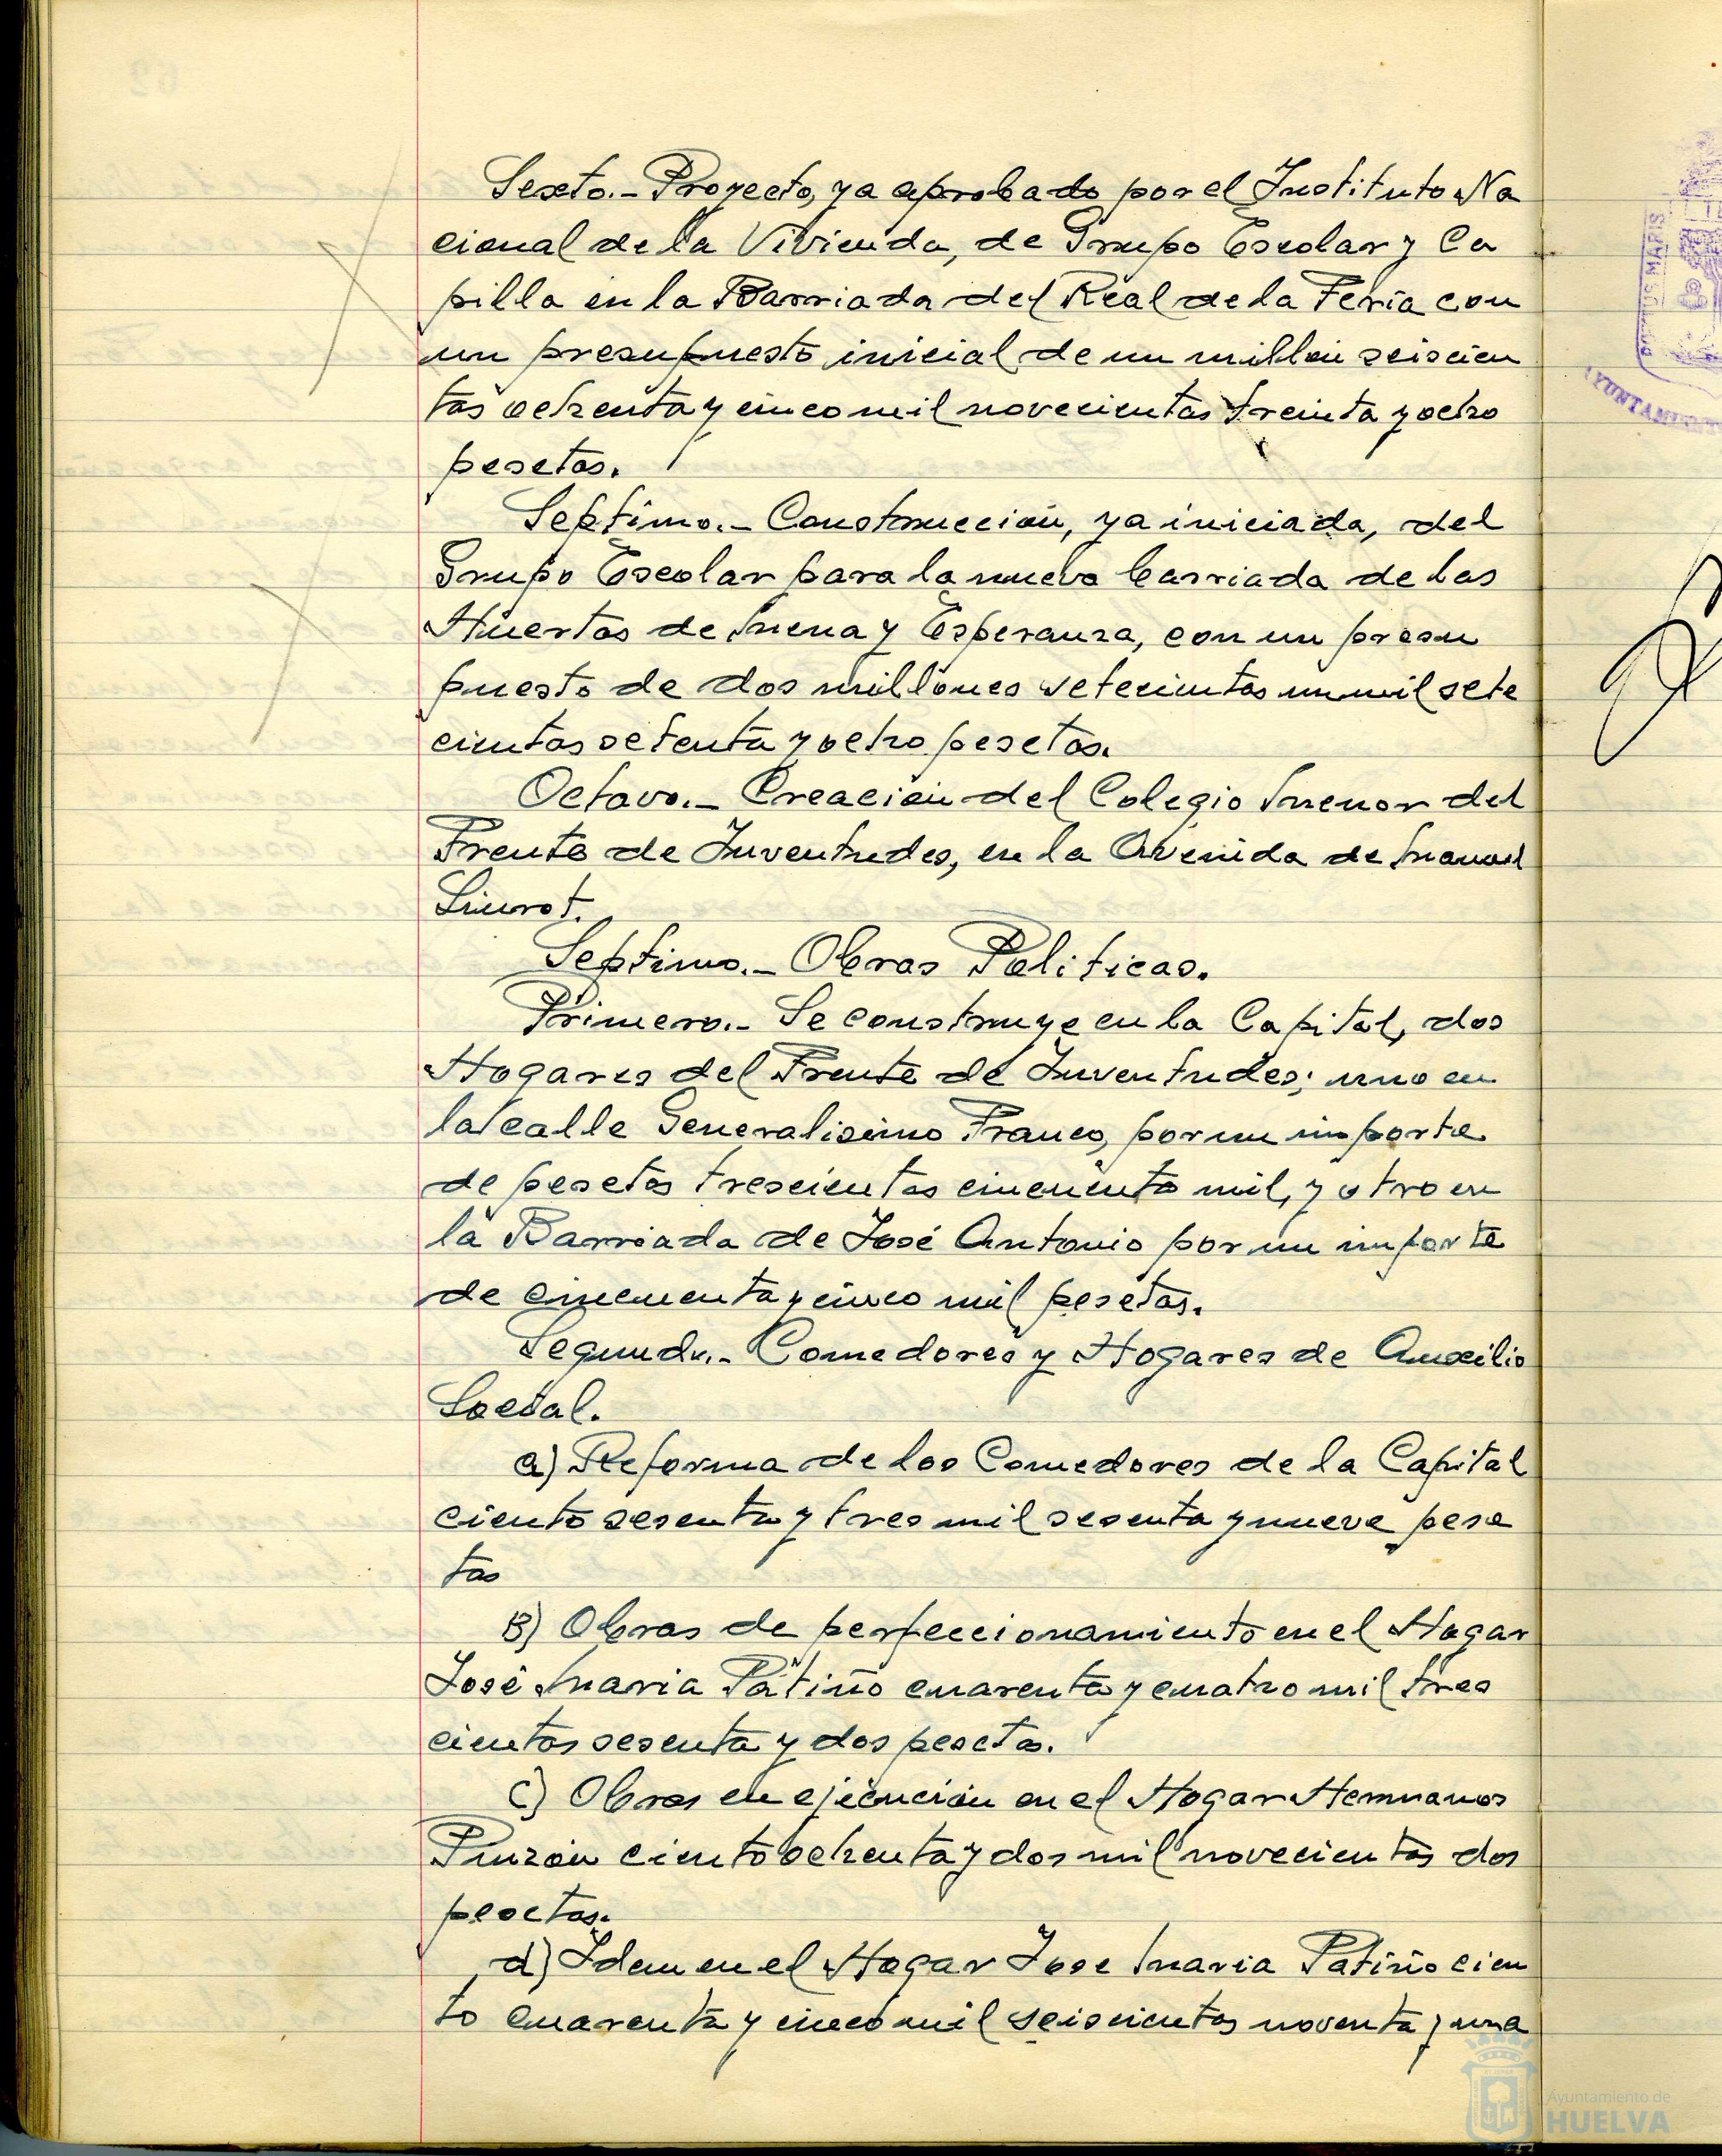 Sexto.- Proyecto, ya aprobado por el Instituto Na
cional de la Vivienda, de Grupo Escolar y Ca
pilla en la Barriada del Real de la Feria con
un presupuesto inicial de un millón seiscien
tas ochenta y cinco mil novecientas treinta y ocho
pesetas.
Septimo.- Construcción, ya iniciada, del
Grupo Escolar para la nueva barriada de las
Huertas de Mena y Esperanza, con un presu
puesto de dos millones setecientas un mil sete
cientas setenta y ocho pesetas.
Octavo.- Creación del Colegio Menor del
Frente de Juventudes, en la Avenida de Manuel
Siurot.
Septimo.- Obras Politicas.
Primero.- Se construye en la Capital, dos
Hogares del Frente de Juventudes; uno en
la calle Generalisimo Franco, por un importe
de pesetas trescientas cincuenta mil, y otro en
la Barriada de José Antonio por un importe
de cincuenta y cinco mil pesetas.
Segundo.- Comedores y Hogares de Auxilio
Social.
a) Reforma de los Comedores de la Capital
ciento sesenta y tres mil sesenta y nueve pese
tas
B) Obras de perfeccionamiento en el Hogar
José Maria Patiño cuarenta y cuatro mil tres
cientas sesenta y dos pesetas.
C) Obras en ejecución en el Hogar Hermanos
Pinzón ciento ochenta y dos mil novecientas dos
pesetas.
d) Idem en el Hogar Jose Maria Patiño cien
to cuarenta y cinco mil seiscientas noventa y una
PORTUS MARIS
AYUNTAMIENTO
Ayuntamiento de
HUELVA